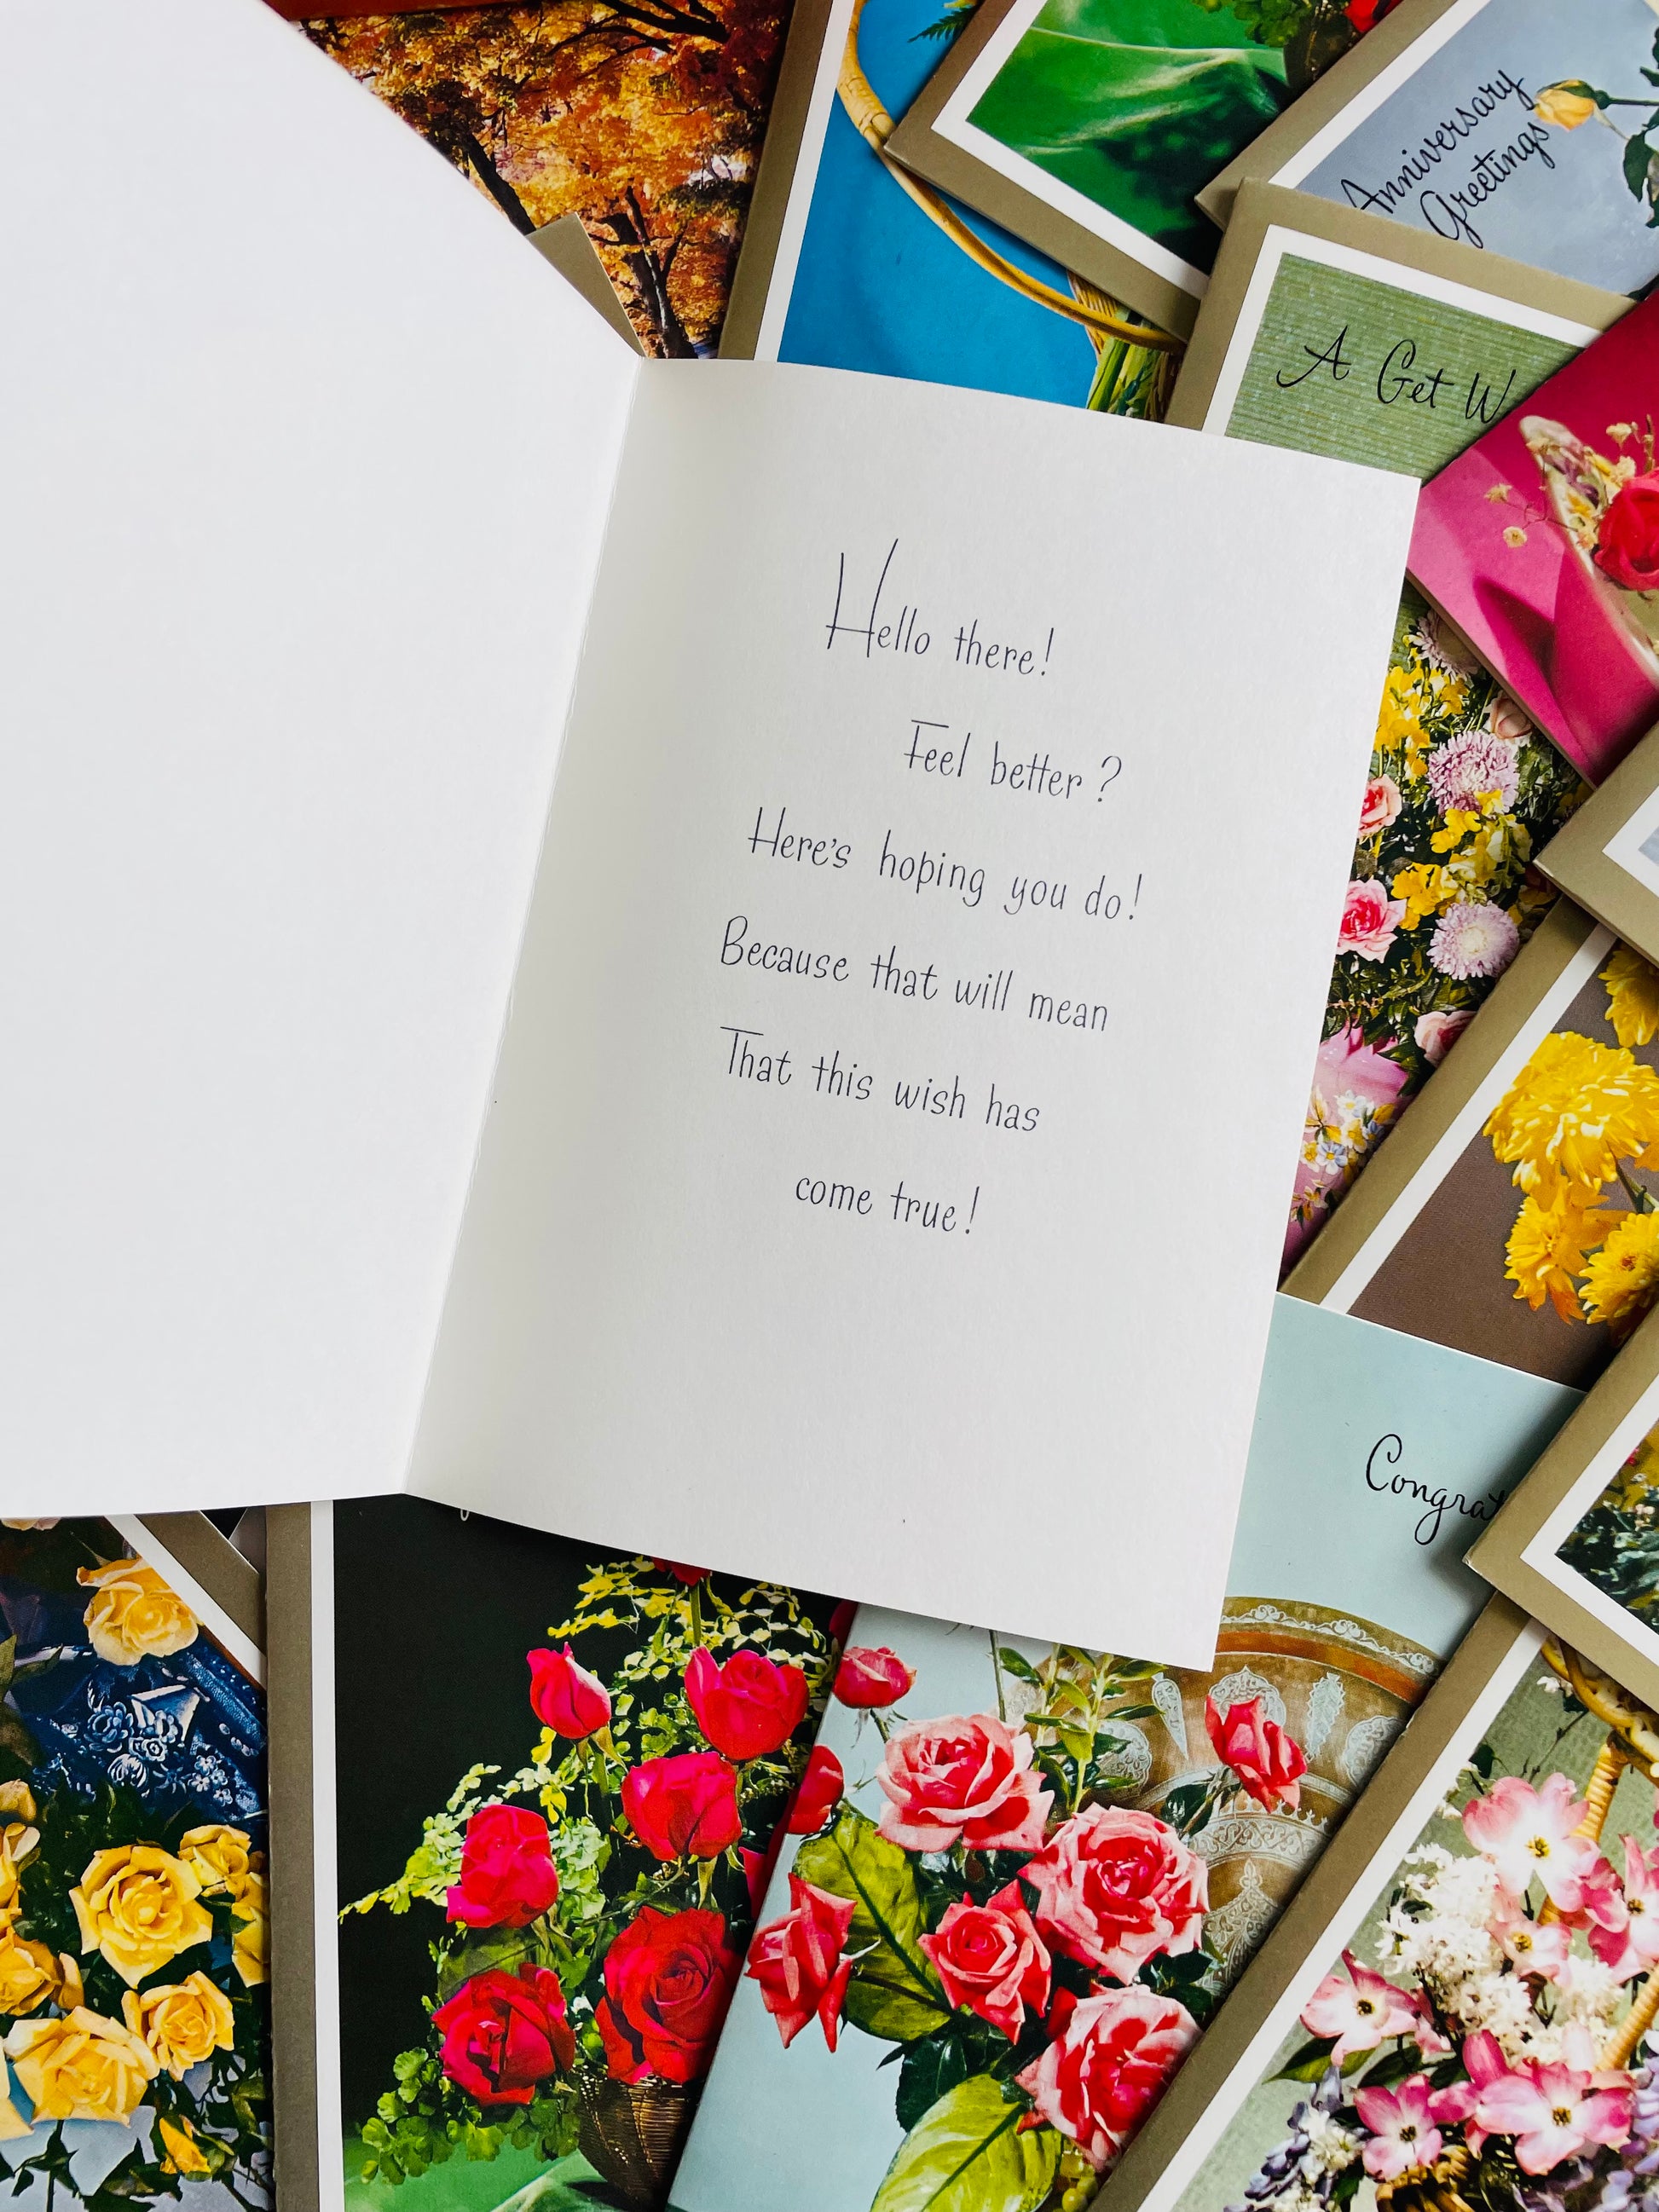 Anniversary
Greetings
A Get W
Hello there!
Feel better?
Here's hoping you do!
Because that will mean
That this wish has
come true!
Congrat